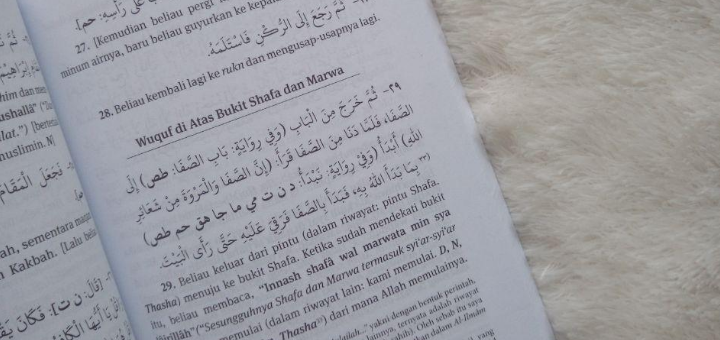 27. [Kemudian beliau pergi
minum airnya, baru beliau guyurkan ke kepal
ثُمَّ رَجَعَ إِلَى الرُّكْنِ فَاسْتَلَمَهُ.
28. Beliau kembali lagi ke rukn dan mengusap-usapnya lagi.
Wuquf di Atas Bukit Shafa dan Marwa
٢٩- ثُمَّ خَرَجَ مِنَ الْبَابِ (وَفِي رِوَايَةٍ: بَابِ الصَّفَا: طص) إِلَى
الصَّفَا، فَلَمَّا دَنَا مِنَ الصَّفَا قَرَأَ: (إِنَّ الصَّفَا وَالْمَرْوَةَ مِنْ شَعَائِرِ
اللهِ) أَبْدَأُ (وَفِي رِوَايَةٍ: نَبْدَأُ: د ن ت مي ما جا هق حم طص)
بِمَا بَدَأَ اللهُ بِهِ، فَبَدَأَ بِالصَّفَا فَرَقِيَ عَلَيْهِ حَتَّى رَأَى الْبَيْتَ.
29. Beliau keluar dari pintu (dalam riwayat: pintu Shafa.
Thasha) menuju ke bukit Shafa. Ketika sudah mendekati bukit
itu, beliau membaca, "Innash shafâ wal marwata min sya
("Sesungguhnya Shafa dan Marwa termasuk syi'ar-syi'ar
memulai (dalam riwayat lain: kami memulai. D, N,
Thasha) dari mana Allah memulainya.
yakni dengan bentuk perintah.
ternyata adalah riwayat
Oleh sebab itu saya
dan dalam Al-Ilmâm
yang
ah, sementara
Kakbah. [Lalu
فَجَعَلَ الْمَقَامَ
[قَالَ: ن ت]: فَكَانَ